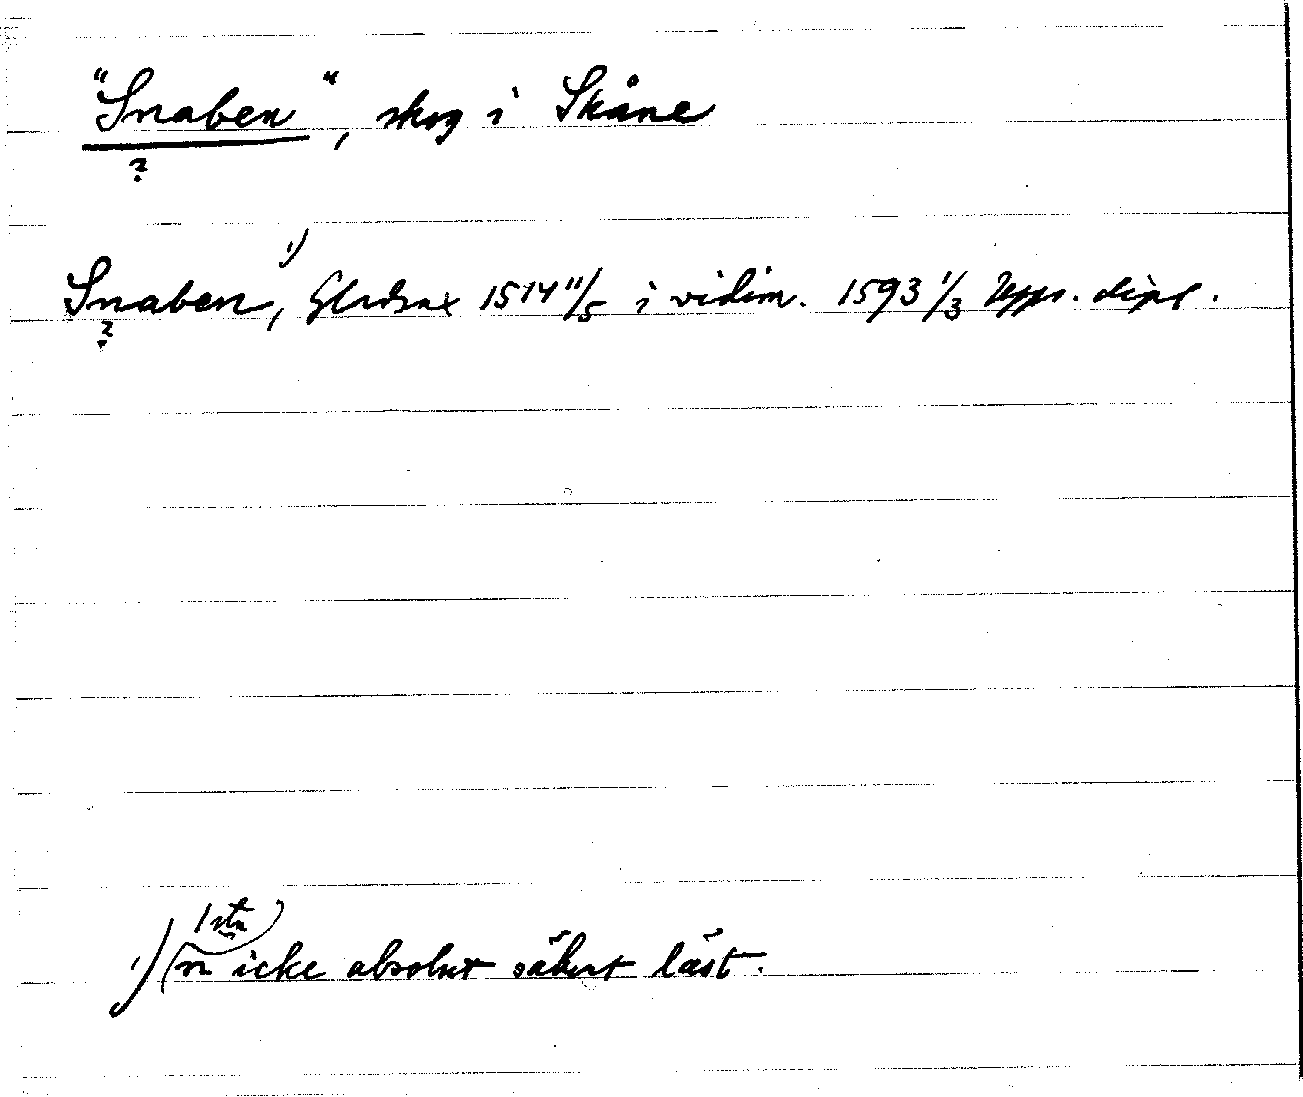 "Snaben", skog i Skåne
?
Snaben,¹⁾ Gladsax 1514 11/5 i vidim. 1593 1/3 Upps. dipl.
?
1sta
¹⁾ n icke absolut säkert läst.